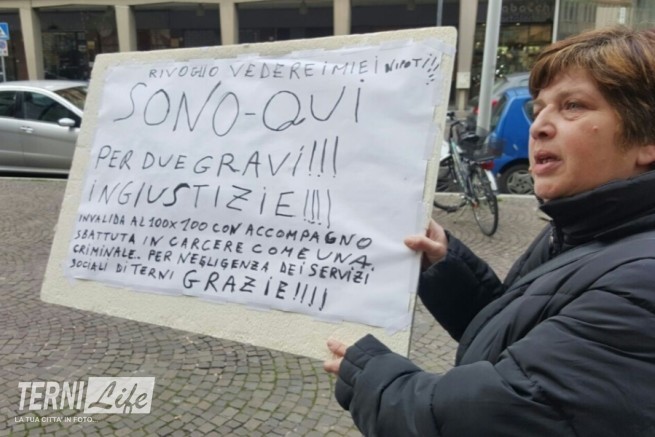 RIVOGLIO VEDERE I MIEI NIPOTI!!!
SONO-QUI
PER DUE GRAVI!!!
INGIUSTIZIE!!!!
INVALIDA AL 100X100 CON ACCOMPAGNO
SBATTUTA IN CARCERE COME UNA.
CRIMINALE. PER NEGLIGENZA DEI SERVIZI
SOCIALI DI TERNI GRAZIE!!!!!
TERNI Life
LA TUA CITTA' IN FOTO.